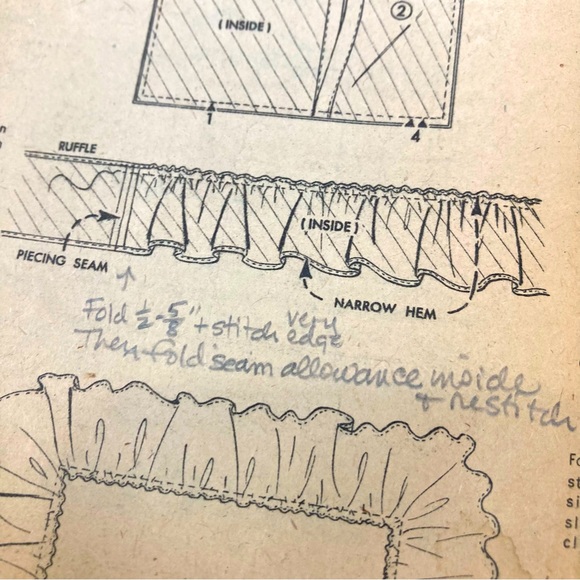 (INSIDE)
2
1
4
RUFFLE
(INSIDE)
PIECING SEAM
NARROW HEM
Fold 1/2 - 5/8" + stitch very edge
Then fold seam allowance inside
+ restitch
Fo
st
si
sl
cl